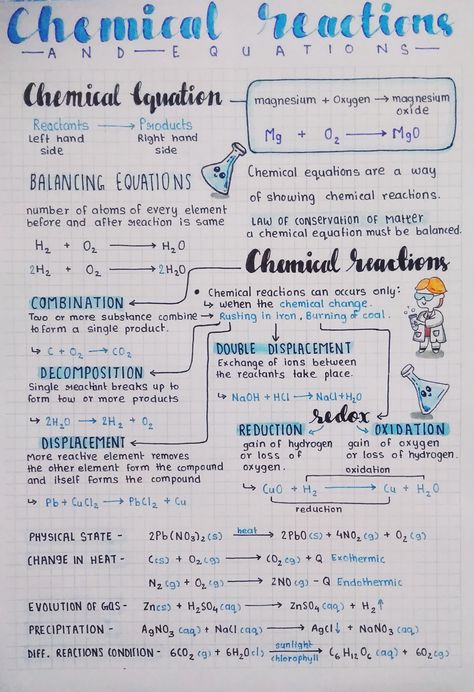 Chemical reactions
AND EQUATIONS
Chemical Equation
magnesium + Oxygen → magnesium oxide
Mg + O₂ → MgO
Reactants → Products
Left hand side
Right hand side
BALANCING EQUATIONS
number of atoms of every element
before and after reaction is same
H₂ + O₂ → H₂O
2H₂ + O₂ → 2H₂O
Chemical equations are a way
of showing chemical reactions.
LAW OF CONSERVATION OF MATTER
a chemical equation must be balanced.
Chemical reactions
• Chemical reactions can occurs only:
↳ wehen the chemical change.
→ Rusting in iron, Burning of coal.
COMBINATION
Two or more substance combine
to form a single product.
↳ C + O₂ → CO₂
DECOMPOSITION
Single reactant breaks up to
form tow or more products
↳ 2H₂O → 2H₂ + O₂
DISPLACEMENT
More reactive element removes
the other element form the compound
and itself forms the compound
↳ Pb + CuCl₂ → PbCl₂ + Cu
DOUBLE DISPLACEMENT
Exchange of ions between
the reactants take place.
↳ NaOH + HCl → NaCl+H₂O
redox
REDUCTION
gain of hydrogen
or loss of
oxygen.
OXIDATION
gain of oxygen
or loss of hydrogen.
oxidation
↳ CuO + H₂ → Cu + H₂O
reduction
PHYSICAL STATE - 2Pb(NO₃)₂(s) heat → 2PbO(s) + 4NO₂(g) + O₂(g)
CHANGE IN HEAT - C(s) + O₂(g) → CO₂(g) + Q Exothermic
N₂(g) + O₂(g) → 2NO(g) - Q Endothermic
EVOLUTION OF GAS - Zn(s) + H₂SO₄(aq) → ZnSO₄(aq) + H₂↑
PRECIPITATION - AgNO₃(aq) + NaCl(aq) → AgCl↓ + NaNO₃(aq)
DIFF. REACTIONS CONDITION - 6CO₂(g) + 6H₂O(l) sunlight → chlorophyll C₆H₁₂O₆(aq) + 6O₂(g)